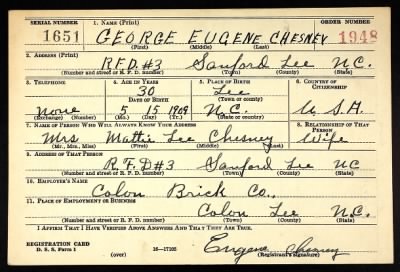 SERIAL NUMBER 1. NAME (Print) ORDER NUMBER
1651 GEORGE EUGENE CHESNEY 1948
(First) (Middle) (Last)
2. ADDRESS (Print)
R.F.D. #3 Sanford Lee N.C.
(Number and street or R. F. D. number) (Town) (County) (State)
3. TELEPHONE 4. AGE IN YEARS 5. PLACE OF BIRTH 6. COUNTRY OF CITIZENSHIP
30 Lee
DATE OF BIRTH (Town or county)
None 5 1909 N.C. U.S.A.
(Exchange) (Number) (Mo.) (Day) (Yr.) (State or country)
7. NAME OF PERSON WHO WILL ALWAYS KNOW YOUR ADDRESS 8. RELATIONSHIP OF THAT PERSON
Mrs Mattie Lee Chesney Wife
(Mr., Mrs., Miss) (First) (Middle) (Last)
9. ADDRESS OF THAT PERSON
R.F.D #3 Sanford Lee NC
(Number and street or R. F. D. number) (Town) (County) (State)
10. EMPLOYER'S NAME
Colon Brick Co.,
11. PLACE OF EMPLOYMENT OR BUSINESS
Colon Lee N.C.
(Number and street or R. F. D. number) (Town) (County) (State)
I AFFIRM THAT I HAVE VERIFIED ABOVE ANSWERS AND THAT THEY ARE TRUE.
REGISTRATION CARD
D. S. S. Form 1 (over) 16—17105 Eugene Chesney
(Registrant's signature)